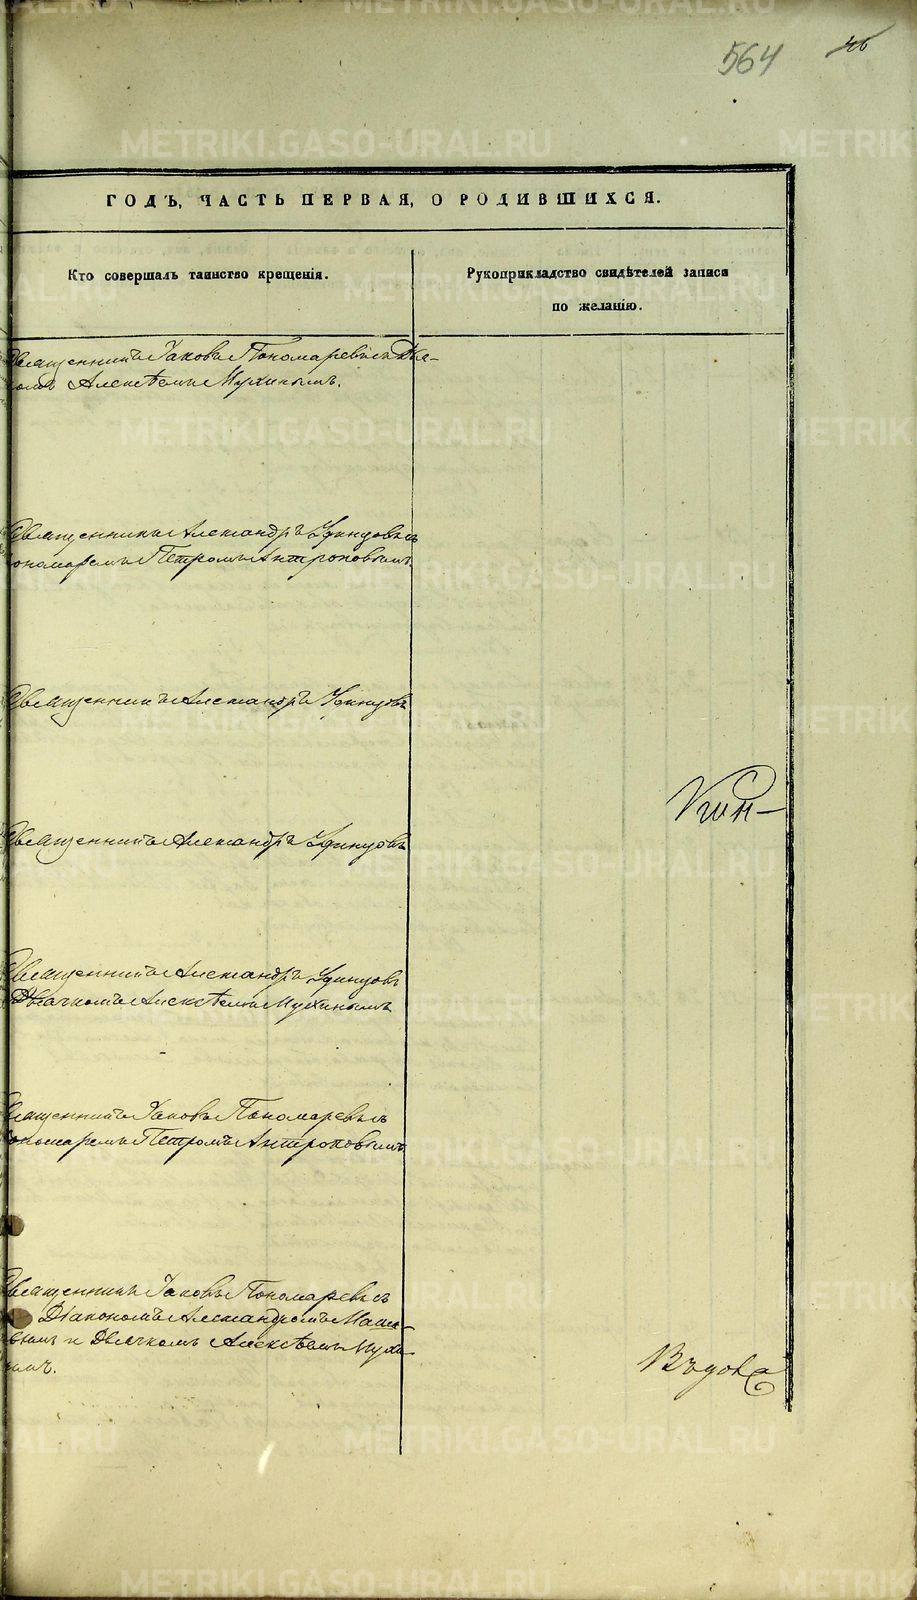 564
46
ГОДЪ, ЧАСТЬ ПЕРВАЯ, О РОДИВШИХСЯ.
Кто совершалъ таинство крещенія.
Рукоприкладство свидѣтелей записи
по желанію.
Священникъ Іаковъ Пономаревъ съ Дья-
комъ Алексѣемъ Мухинымъ.
Священникъ Александръ Удинцовъ съ
ономаремъ Петромъ Антроповымъ
Священникъ Александръ Удинцовъ
Священникъ Александръ Удинцовъ
Священникъ Александръ Удинцовъ
Дьячкомъ Алексѣемъ Мухинымъ
Священникъ Іаковъ Пономаревъ съ
ономаремъ Петромъ Антроповымъ
Священникъ Іаковъ Пономаревъ съ
Діакономъ Александромъ
и Дьячкомъ Алексѣемъ Мухи-
нымъ.
METRIKI.GASO-URAL.RU